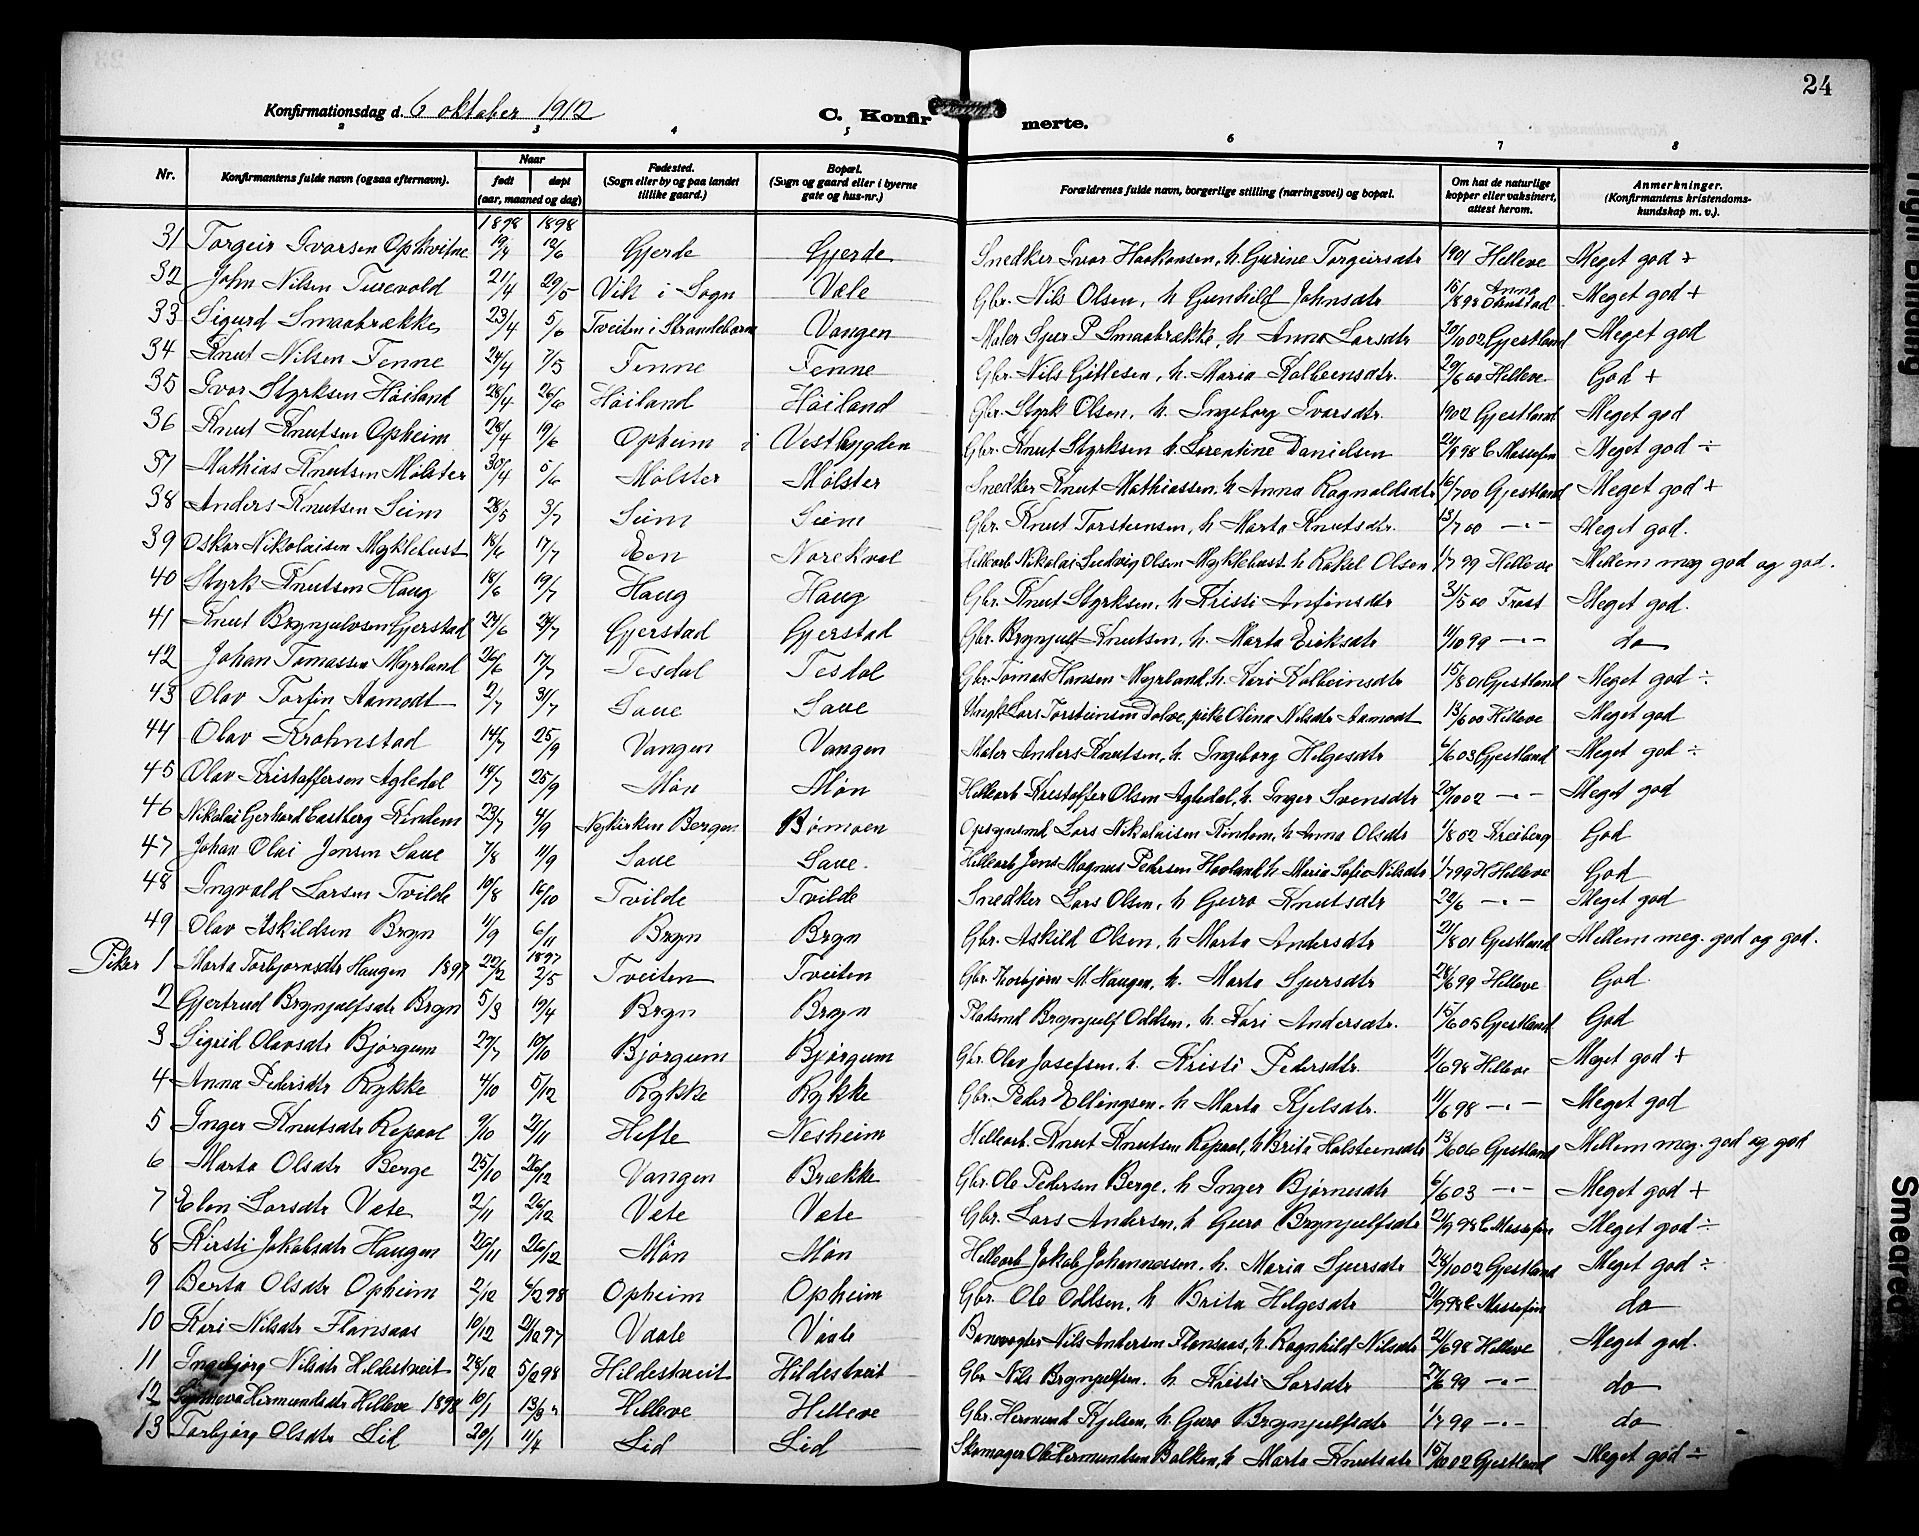 24
Konfirmationsdag d. 6 oktober 1912 C. Konfirmerte.
2 3 4 5 6 7 8
Nr. Konfirmantens fulde navn (ogsaa efternavn). Naar født døpt (aar, maaned og dag) Fødested. (Sogn eller by og paa landet tillike gaard.) Bopæl. (Sogn og gaard eller i byerne gate og hus-nr.) Forældrenes fulde navn, borgerlige stilling (næringsvei) og bopæl. Om hat de naturlige kopper eller vaksinert, attest herom. Anmerkninger. (Konfirmantens kristendoms-kundskap m. v.).
1898 1898
31 Torgeir Ivarsen Ophvitne 19/4 12/6 Gjerde Gjerde Snedker Ivar Haakonsen, h. Gurine Torgeirsdtr 1901 Helleve Meget god ÷
32 John Nilsen Tusevold 21/4 29/5 Vik i Sogn Væle Gbr. Nils Olsen, h Gunhild Johnsdtr 16/8 98 Anna Meget god +
33 Sigurd Smaabrække 23/4 5/6 Tveiten i Strandebarm Vangen Maler Sjur P Smaabrække, h Anna Larsdtr 20/10 02 Gjestland Meget god
34 Knut Nilsen Fenne 24/4 7/5 Fenne Fenne Gbr. Nils Gitlesen, h. Maria Kolbeensdtr. 29/6 00 Helleve God +
35 Ivar Styrksen Høiland 28/4 26/6 Høiland Høiland Gbr. Styrk Olsen, h. Ingeborg Ivarsdtr. 1902 Gjestland Meget god
36 Knut Knutsen Opheim 28/4 19/6 Opheim i Vestbygden Gbr. Knut Styrksen h. Lorentine Danielsen 98 C Massefin Meget god ÷
37 Mathias Knutsen Mølster 30/4 5/6 Mølster Mølster Snedker Knut Mathiassen, h Anna Ragnaldsdtr 16/7 00 Gjestland Meget god +
38 Anders Knutsen Seim 28/5 3/7 Seim Seim Gbr. Knut Torsteinsen, h Marta Knutsdtr. 13/7 00 -"- Meget god.
39 Oskar Nikolaisen Myklebust 18/6 17/7 Een Norekval Hillearb Nikolai Ludvig Olsen Myklebust h Rakel Olsen 1/7 99 Helleve Mellem meg god og god.
40 Styrk Knutsen Haug 18/6 19/7 Haug Haug Gbr. Knut Styrksen, h Kristi Anfinsdtr 31/5 00 Trost Meget god.
41 Knut Brynjulvsen Gjerstad 24/6 24/7 Gjerstad Gjerstad Gbr. Brynjulf Knutsen, h. Marta Eriksdtr 11/10 99 -"- do
42 Johan Tomassen Myrland 26/6 17/7 Tesdal Tesdal Gbr. Tomas Hansen Myrland, h. Kari Kolbeinsdtr 15/8 01 Gjestland Meget god ÷
43 Olav Torfin Aamodt 2/7 31/7 Saue Saue Ungk Lars Torsteinsen Dolve, pike Olina Nilsdtr Aamodt 13/6 00 Helleve Meget god
44 Olav Krohnstad 14/7 25/9 Vangen Vangen Maler Anders Knutsen, h. Ingeborg Helgesdtr 6/6 03 Gjestland Meget god ÷
45 Olav Kristoffersen Agledal 14/7 25/9 Møn Møn Hillearb Kristoffer Olsen Agledal, h. Inger Svensdtr 20/10 02 -"- Meget god
46 Nikolai Gerhard Castberg Kindem 23/7 4/9 Nykirken Bergen Bømoen Opsynsmd Lars Nikolaisen Kindem, h Anna Olsdtr 1/8 02 Kreiberg God
47 Johan Olai Jensen Saue 7/8 11/9 Saue Saue. Hillearb Jens Magnus Pedersen Hovland h Maria Sofie Nilsdtr 1/7 99 H Helleve God
48 Ingvald Larsen Tvilde 10/8 16/10 Tvilde Tvilde Snedker Lars Olsen, h Guro Knutsdtr 22/6 -"- Meget god
49 Olav Askildsen Bryn 11/9 6/11 Bryn Bryn Gbr. Askild Olsen, h Marta Andersdtr 21/8 01 Gjestland Mellem meg. god og god.
Piker 1 Marta Torbjørnsdtr Haugen 1897 22/2 1897 2/5 Tveiten Tveiten Gbr. Torbjørn M. Haugen, h. Marta Sjursdtr 28/6 99 Helleve God.
2 Gjertrud Brynjulfsdtr Bryn 5/3 19/4 Bryn Bryn Pladsmd Brynjulf Oddsen, h. Kari Andersdtr. 15/6 05 Gjestland God
3 Sigrid Olavsdtr Bjørgum 27/7 10/10 Bjørgum Bjørgum Gbr. Olav Josefsen, h Kristi Pedersdtr. 11/6 98 Helleve Meget god +
4 Anna Pedersdtr Rykke 4/10 5/12 Rykke Rykke Gbr. Peder Ellingsen, h Marta Kjelsdtr. 11/6 98 -"- Meget god
5 Inger Knutsdtr Repaal 9/10 21/11 Hefte Nesheim Hillearb. Knut Knutsen Repaal, h Brita Holsteensdtr 13/6 06 Gjestland Mellem meg. god og god
6 Marta Olsdtr Berge 25/10 26/12 Vangen Brække Gbr. Ole Pedersen Berge, h Inger Bjørnesdtr 6/6 03 -"- Meget god +
7 Elen Larsdtr Væte 2/11 26/12 Væte Væte Gbr. Lars Andersen, h Guro Brynjulfsdtr 21/9 98 C Massefin Meget god ÷
8 Kirsti Jakobsdtr Haugen 20/11 26/12 Møn Møn Hillearb Jakob Johannessen, h. Maria Sjursdtr 28/10 02 Gjestland Meget god ÷
9 Berta Olsdtr Opheim 2/12 6/2 98 Opheim Opheim Gbr. Ole Oddsen, h Brita Helgesdtr 21/9 98 C Massefin do
10 Kari Nilsdtr Flansaas 10/12 2/12 97 Vaate Vaate Banevogter Nils Andersen Flansaas, h. Ragnhild Nilsdtr 21/6 98 Helleve Meget god.
11 Ingebjørg Nilsdtr Hildestveit 28/12 5/2 98 Hildestveit Hildestveit Gbr Nils Brynjulfsen, h Kristi Larsdtr 27/6 99 -"- do
12 Synneva Hermundsdtr Helleve 1898 10/1 13/3 " Helleve Helleve Gbr. Hermund Kjelsen, h. Guro Brynjulfsdtr 1/7 99 -"- do
13 Torbjørg Olsdtr Lid 20/1 11/4 Lid Lid Skomager Ole Hermundsen Balken, h Marta Knutsdtr 15/10 02 Gjestland Meget god ÷
Tight Binding
Smeared